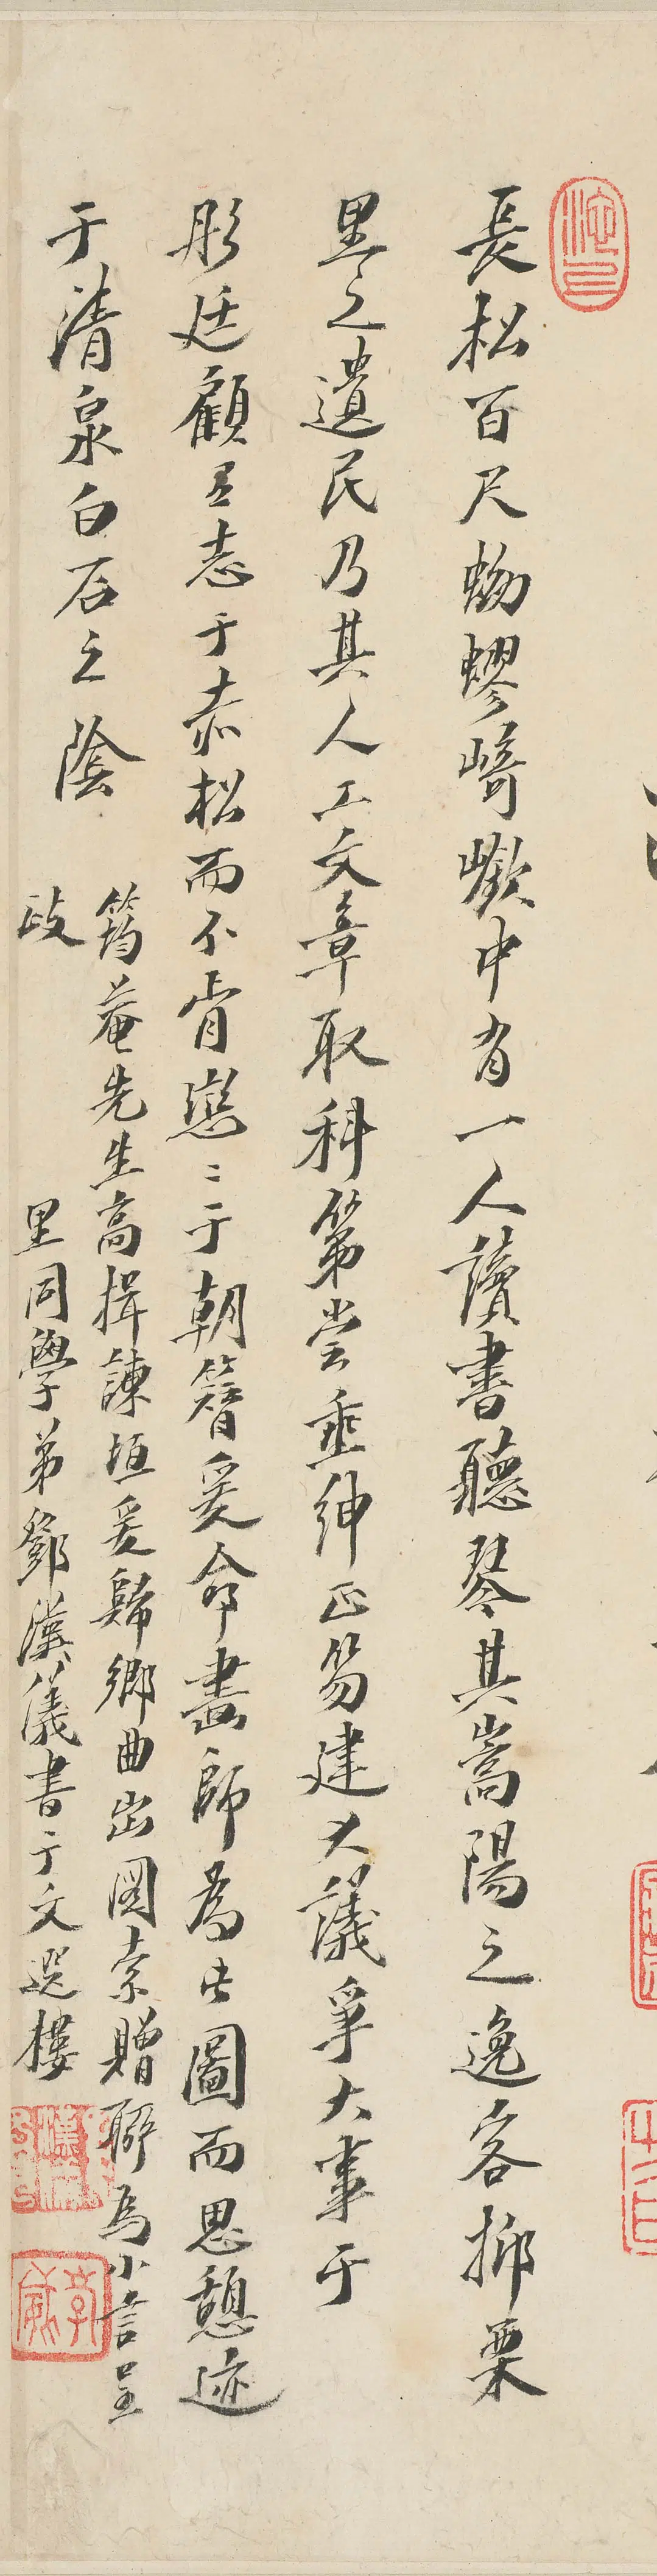 長松百尺蚴蟉崎嶔中有一人讀書聽琴其嵩陽之逸客抑栗
里之遺民乃其人工文章取科第嘗垂紳正笏建大議爭大事于
彤廷顧畱志于赤松而不肯戀〻于朝簪爰命畫師為此圖而思憩迹
于清泉白石之陰
筠菴先生高揖諫垣爰歸鄉曲出圖索贈聊為小言呈
政
里同學弟鄧漢儀書于文選樓